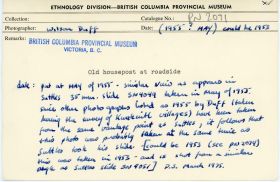 ETHNOLOGY DIVISION—BRITISH COLUMBIA PROVINCIAL MUSEUM
Collection: Catalogue No.: PN 7071
Photographer: Wilson Duff Date: (1955? MAY) could be 1953
Remarks: BRITISH COLUMBIA PROVINCIAL MUSEUM
VICTORIA, B. C.
Old housepost at roadside
date: put at May of 1955 - similar view as appears in
Suttles 35 mm. slide SN4049 taken in May of 1955.
since other photographs listed as 1955 by Duff (taken
during the survey of Kuakiutl villages) have been taken
from the same vantage point as Suttles it follows that
this photo was probably taken at the same time as
Suttles took his slide. [could be 1953 (see PN 7054)
this was taken in 1953 - and is shot from a similar
as Suttles slide SN 4051] D.S. March 1975.